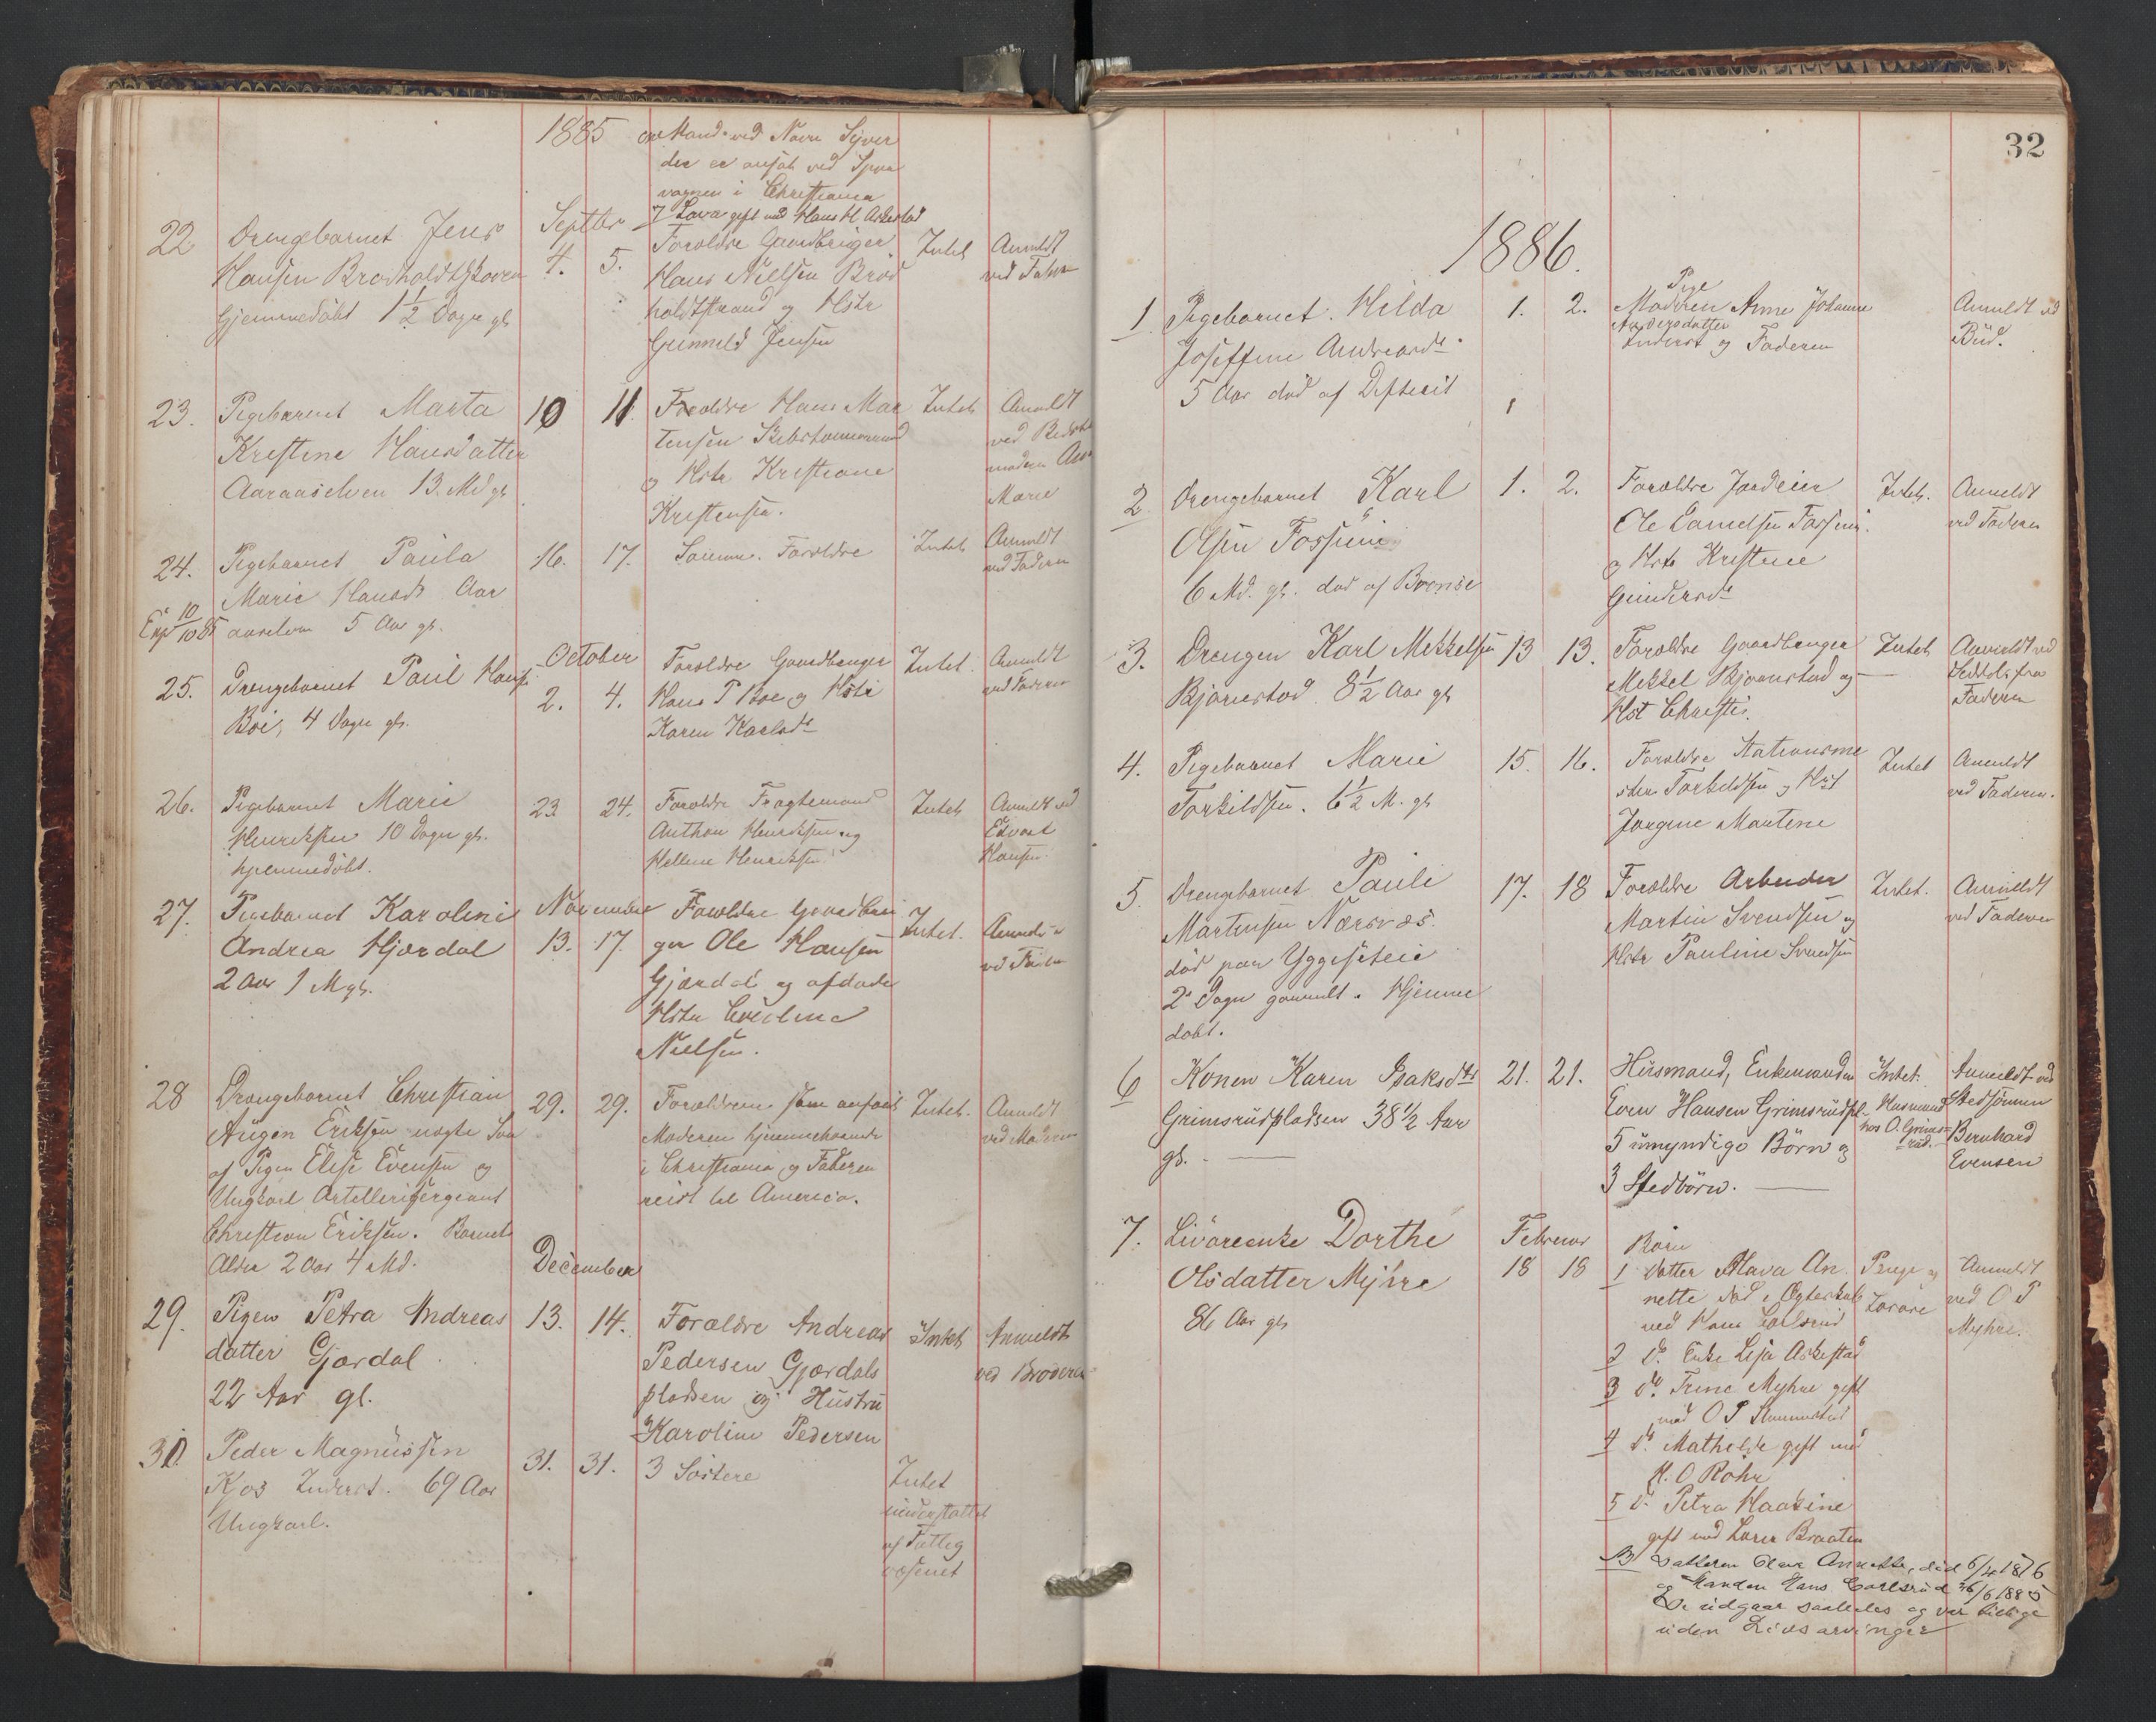 1885
ved Navn Syver
der er ansat ved Spor
vognen i Christiania
7 Lava gift med Hans H Askestad
22 Drengebarnet Jens
Hansen Brodholdtskoven
Hjemmedöbt 1½ Dage gl
Septbr
4. 5.
Foreldre Gaardbruger
Hans Nielsen Brod
holdtstrand og Hstr
Gunnild Jensen
Intet
Anmeldt
ved Fader
23. Pigebarnet Marta
Kristine Hansdatter
Aaraaselven 13. Md gl
10 11.
Foreldre Hans Mar
tensen Skibstømmermand
og Hstr Kristiane
Kristensen.
Intet
Anmeldt
ved Bedste
moderen
Marie
24. Pigebarnet Paula
Marie Hansdt Aar
aaselven 5 Aar gl.
Exp 10/10 85
16. 17.
Samme Foreldre
Intet
Anmeldt
ved Faderen
25. Drengebarnet Paul Hans
Boe, 4 Dage gl.
October
2. 4.
Foreldre Gaardbruger
Hans P Boe og Hstr
Karen Karlsdt
Intet.
Anmeldt
ved Faderen
26. Pigebarnet Marie
Henriksen 10 Dage gl.
hjemmedöbt.
23. 24.
Foreldre Fragtemand
Anthon Henriksen og
Hellene Henriksen
Intet
Anmeldt ved
Edvart
Hansen
27. Pigebarnet Karoline
Andrea Hjærdal
2 Aar 1 M gl.
November
13. 17.
Foreldre Gaardbru
ger Ole Hansen
Gjærdal og afdøde
Hstr
Nielsen.
Intet.
Anmeldt
ved Fader
28 Drengebarnet Christian
Augen Eriksen uægte Søn
af Pigen Elise Evensen og
Ungkarl Artillerisergeant
Christian Eriksen. Barnets
Alder 2 Aar 4 Md.
29. 29.
Forældrene som anført
Moderen hjemmehørende
i Christiania og Faderen
reist til America.
Intet.
Anmeldt
ved Moderen
29. Pigen Petra Andreas
datter Gjærdal
22 Aar gl.
December
13. 14.
Forældre Andreas
Pedersen Gjærdals
pladsen og Hustru
Karoline Pedersen
Intet
Anmeldt
ved Broderen
30. Peder Magnussen
Kjos Inderst. 69 Aar
Ungkarl.
31. 31.
3 Søstere
Intet
understøttet
af Fattig
væsenet
32
1886.
1 Pigebarnet Hilda
Josefine Andreasdt
5 Aar død af Difterit
1. 2.
Pige
Moderen Anne Johanne
Andersdatter
Inderst og Faderen
Anmeldt ved
Bud.
2 Drengebarnet Karl
Olsen Fossum
6 Md. gl. død af Bronse
1. 2.
Forældre Jordeier
Ole Danielsen Fossum
og Hstr Kristine
Gundersdt
Intet.
Anmeldt
ved Faderen
3. Drengen Karl Mekkelsen
Bjørnestad 8½ Aar gl
13 13.
Forældre Gaardbruger
Mekkel Bjørnstad og
Hst Christi.
Intet
Anmeldt ved
Seddel fra
Faderen
4. Pigebarnet Marie
Torkildsen. 6½ M. gl
15. 16.
Forældre Stationsme
ster Torkildsen og Hst
Jørgine Martene
Intet
Anmeldt
ved Faderen.
5. Drengebarnet Paule
Martensen Nærsnæs.
død paa Yggeseteie
2 Dage gammelt. Hjemme
døbt.
17. 18
Forældre Arbeider
Martin Svendsen og
Hstr Pauline Svendsen
Intet.
Anmeldt
ved Faderen
6 Konen Karen Isaksdtr
Grimsrudpladsen 38½ Aar
gl.
21. 21.
Husmand, Enkemanden
Even Hansen Grimsrudpl
5 umyndige Børn og
3 Stedbørn.
Intet.
Husmand
hos O. Grims
rud.
Anmeldt ved
Stedsønnen
Bernhard
Evensen
7. Livøreenke Dorthe
Olsdatter Myhre
86 Aar gl
Februar
18 18
Børn
1 Datter Olava An
nette død i Ægteskab
ved Hans Carlsrud
2 Dr. Enke Lisa Askestad
3 Dr. Trine Myhre gift
med O P
4 Dr. Mathilde gift med
H. O Rohr
5 Dr. Petra Haakine
gift med Lars Braaten
Penge og
Løsøre
Anmeldt
ved O P
Myhre.
NB Datteren Olava Annette, död 6/4 1876
og Manden Hans Carlsrud 26/6 1885
De udgaar saaledes og var tillige
uden Livsarvinger